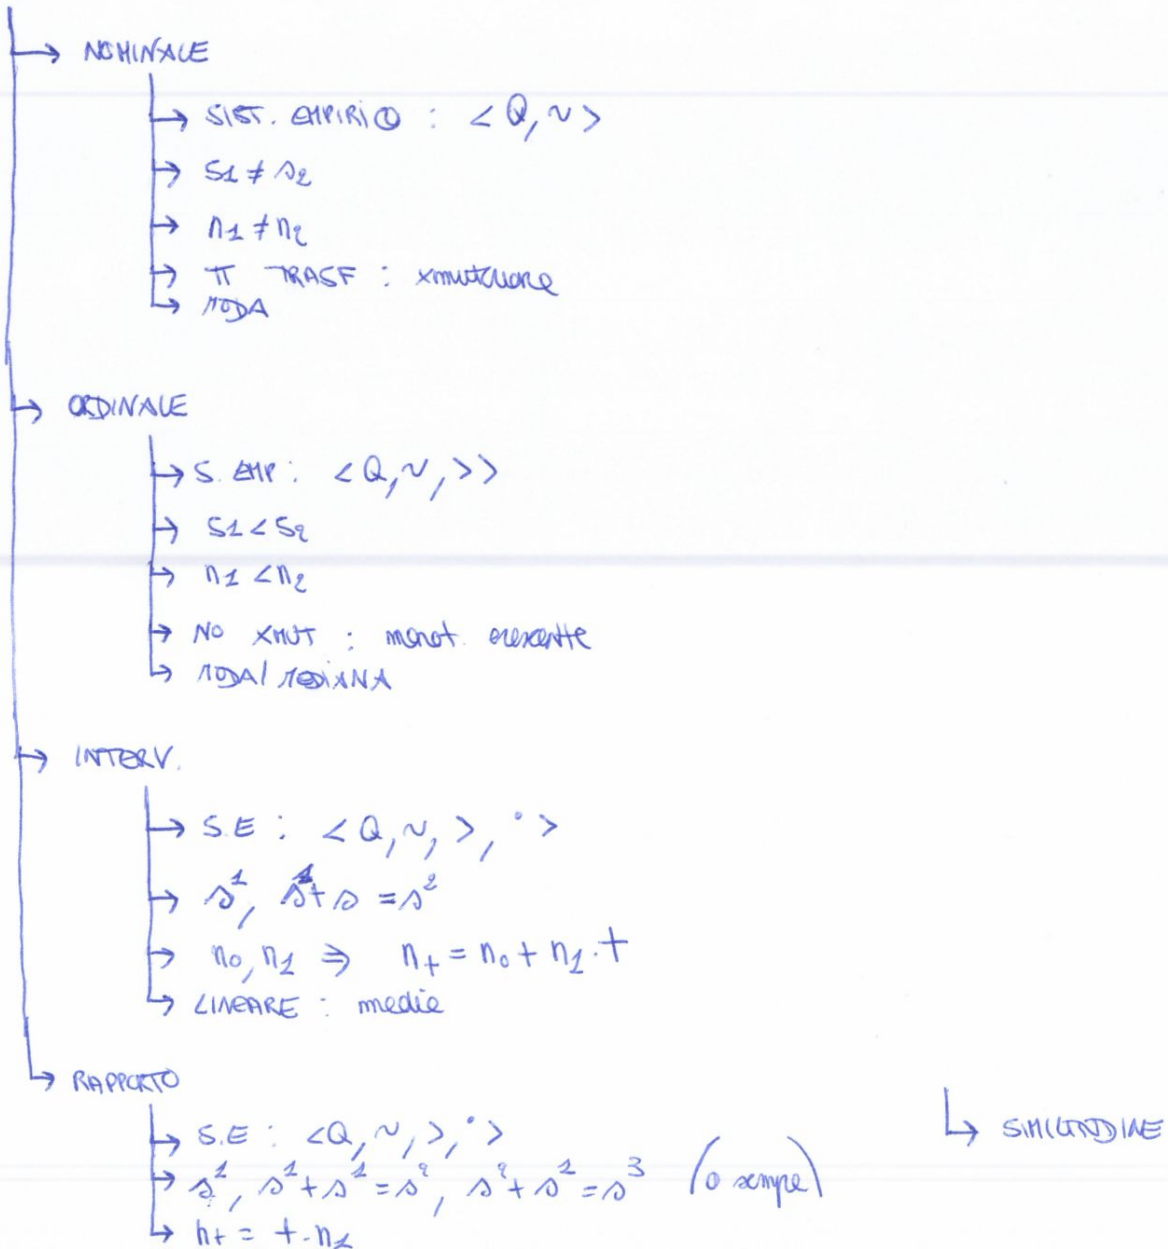 → NOMINALE
→ SIST. EMPIRICO : < Q, ~ >
→ S1 ≠ S2
→ n1 ≠ n2
→ π TRASF : xmutazione
→ MODA
→ ORDINALE
→ S. EMP : < Q, ~, > >
→ S1 < S2
→ n1 < n2
→ NO XMUT : monot. crescente
→ MODA / MEDIANA
→ INTERV.
→ S.E : < Q, ~, >, ° >
→ s¹, s¹ + s = s²
→ n0, n1 ⇒ nt = n0 + n1 · t
→ LINEARE : media
→ RAPPORTO
→ S.E : < Q, ~, >, ° >
→ s¹, s¹ + s¹ = s², s² + s¹ = s³ (0 sempre)
→ nt = t · n1
→ SIMILITUDINE